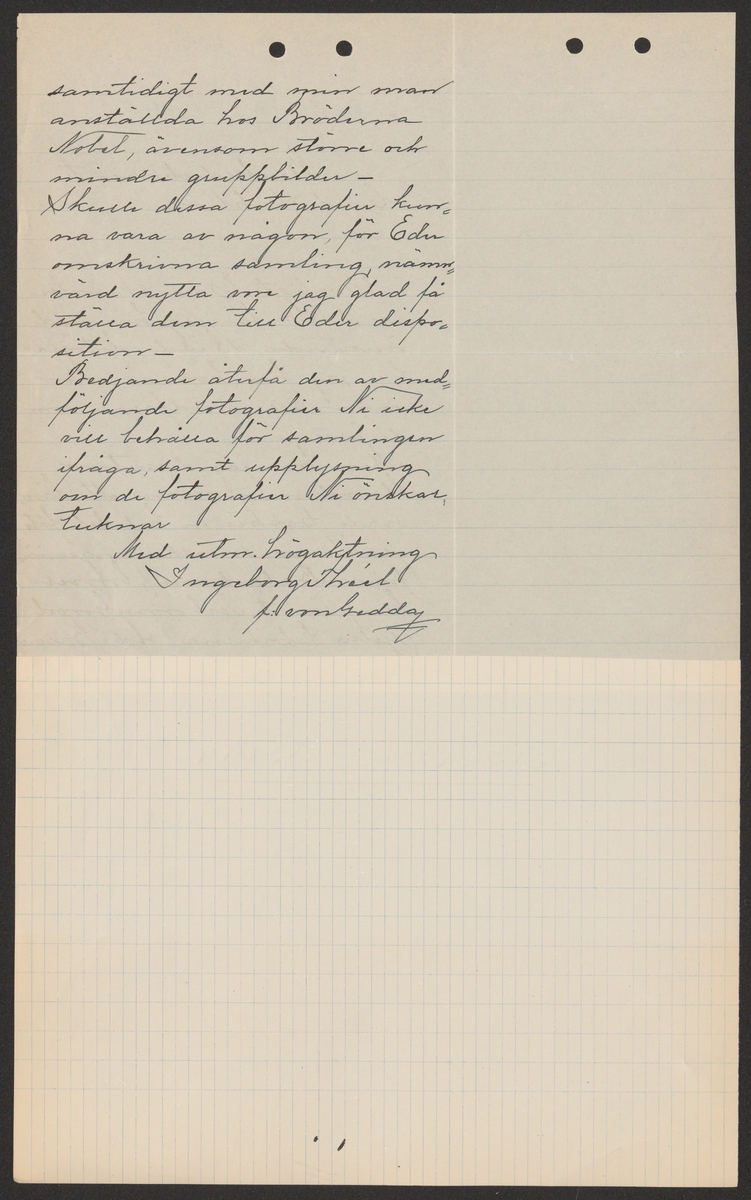 samtidigt med min man
anställda hos Bröderna
Nobel, ävensom större och
mindre gruppbilder –
Skulle dessa fotografier kun-
na vara av någon, för Eder
omskrivna samling, nämn-
värd nytta vore jag glad få
ställa dem till Eder dispo-
sition –
Bedjande återfå den av med-
följande fotografier Ni icke
vill behålla för samlingen
ifråga, samt upplysning
om de fotografier Ni önskar,
tecknar
Med utm. högaktning
Ingeborg Théel
f. von Gedda